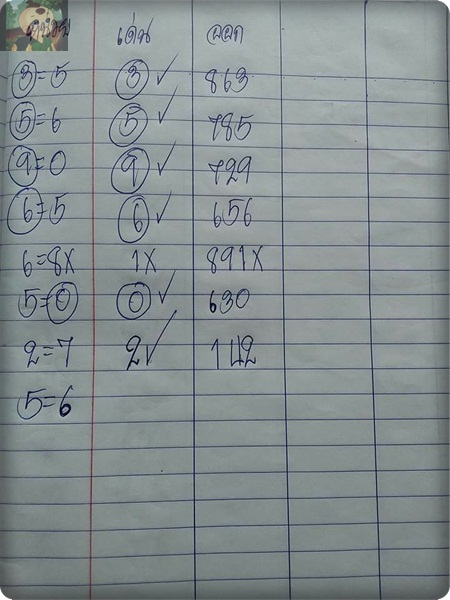 เด่น ออก
3=5 3 ✓ 863
5=6 5 ✓ 785
9=0 9 ✓ 729
6=5 6 ✓ 656
6=8X 1X 891X
5=0 0 ✓ 630
2=7 2 ✓ 142
5=6